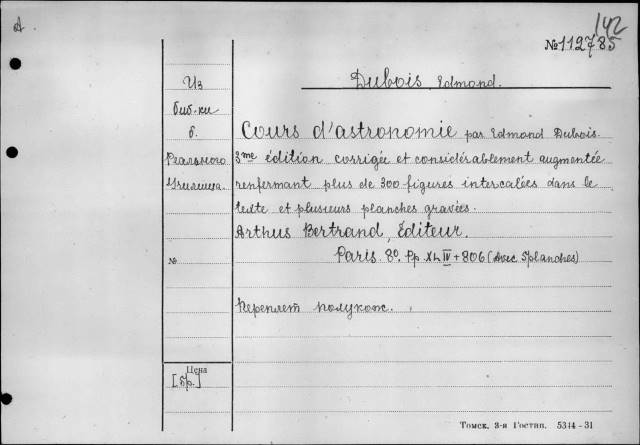 A
142
№112785
Dubois, Edmond.
Из
биб-ки
б.
Реального
Училища
Cours d'astronomie par Edmond Dubois.
3me édition corrigée et considérablement augmentée
renfermant plus de 300 figures intercalées dans le
texte et plusieurs planches gravées.
Arthus Bertrand, Éditeur.
Paris. 8º. Pp. XLIV + 806 (Avec 5 planches)
№
Переплет полукож.
Цена
[бр.]
Томск. 3-я Гостип. 5344-31